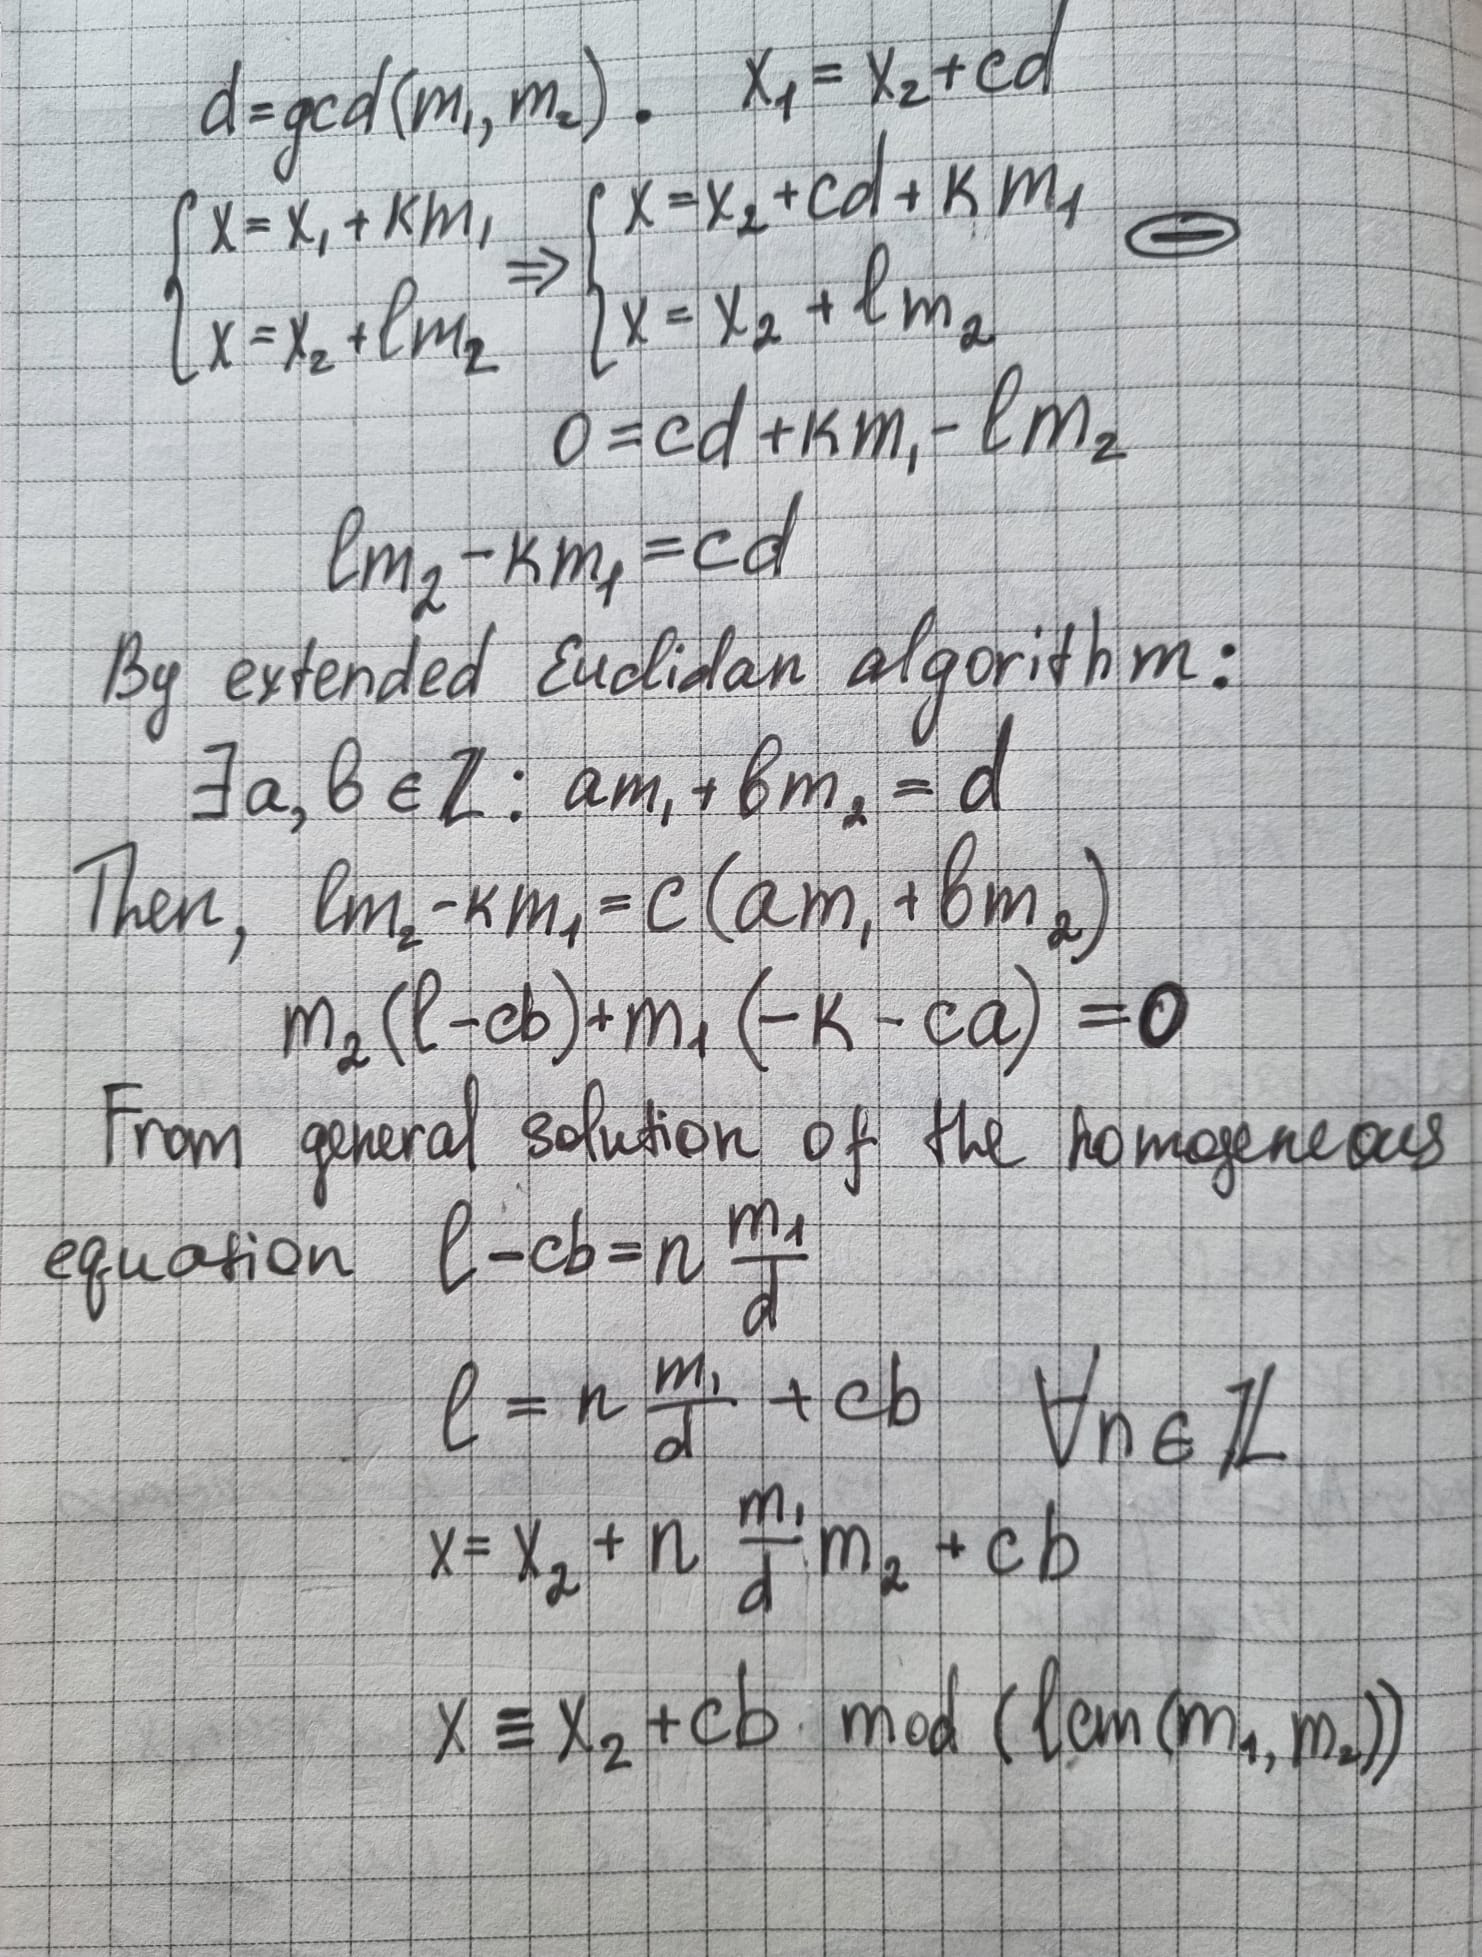 d=gcd(m₁,m₂). x₁=x₂+cd
{x=x₁+km₁ ⇒ {x=x₂+cd+km₁ ⊖
{x=x₂+lm₂ {x=x₂+lm₂
0=cd+km₁-lm₂
lm₂-km₁=cd
By extended Euclidan algorithm:
∃a,b∈ℤ: am₁+bm₂=d
Then, lm₂-km₁=c(am₁+bm₂)
m₂(l-cb)+m₁(-k-ca)=0
From general solution of the homogeneous
equation l-cb=n m₁/d
l=n m₁/d +cb ∀n∈ℤ
x=x₂+n m₁/d m₂+cb
x≡x₂+cb mod (lcm(m₁,m₂))